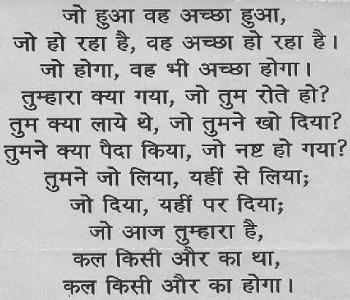 जो हुआ वह अच्छा हुआ,
जो हो रहा है, वह अच्छा हो रहा है।
जो होगा, वह भी अच्छा होगा।
तुम्हारा क्या गया, जो तुम रोते हो?
तुम क्या लाये थे, जो तुमने खो दिया?
तुमने क्या पैदा किया, जो नष्ट हो गया?
तुमने जो लिया, यहीं से लिया;
जो दिया, यहीं पर दिया;
जो आज तुम्हारा है,
कल किसी और का था,
कल किसी और का होगा।